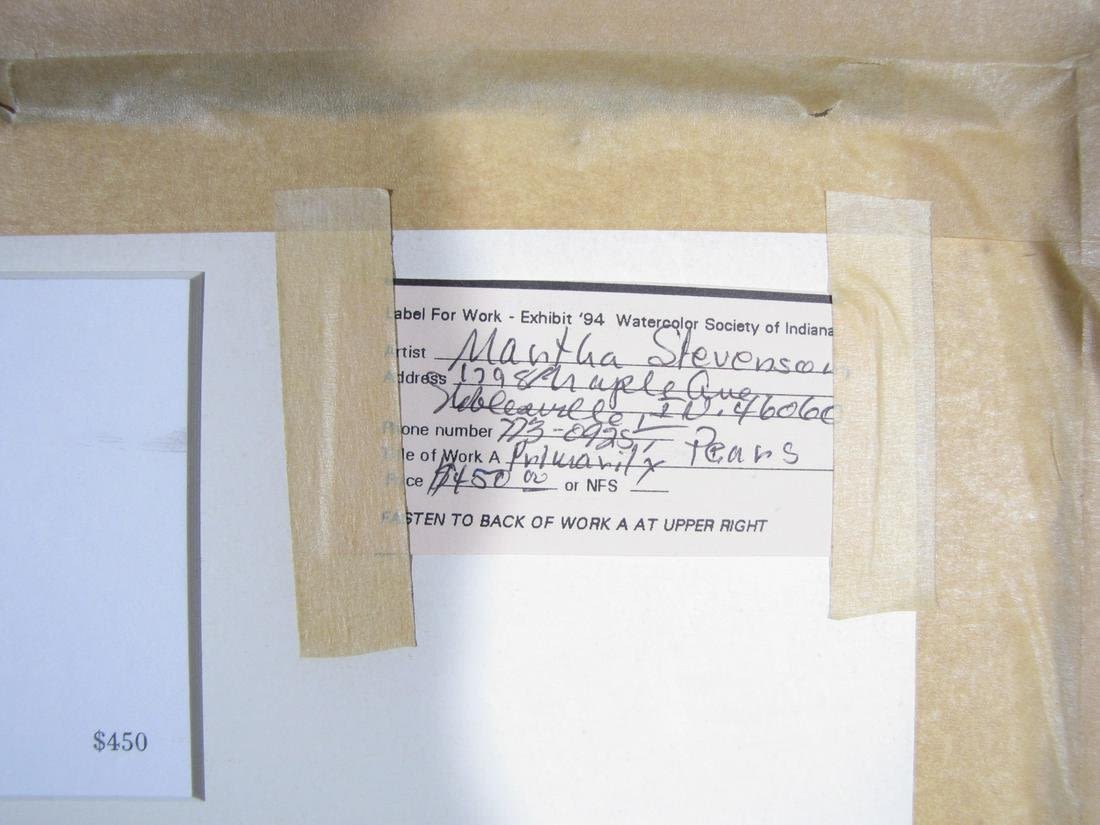 Label For Work - Exhibit '94 Watercolor Society of Indiana
Artist Martha Stevenson
Address 1798 Maple Ave
Noblesville IN. 46060
Phone number 773-0925
Title of Work A Primarily Pears
Price $450 00 or NFS
FASTEN TO BACK OF WORK A AT UPPER RIGHT
$450